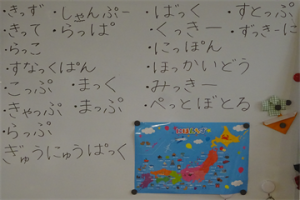 ・きっず ・しゃんぷー ・ばっく ・すとっぷ
・きって ・らっぱ ・くっきー ・ずっきーに
・らっこ ・にっぽん
・すなっくぱん ・ほっかいどう
・こっぷ ・まっく ・みっきー
・きゃっぷ ・まっぷ ・ぺっとぼとる
・らっぷ
・ぎゅうにゅうぱっく